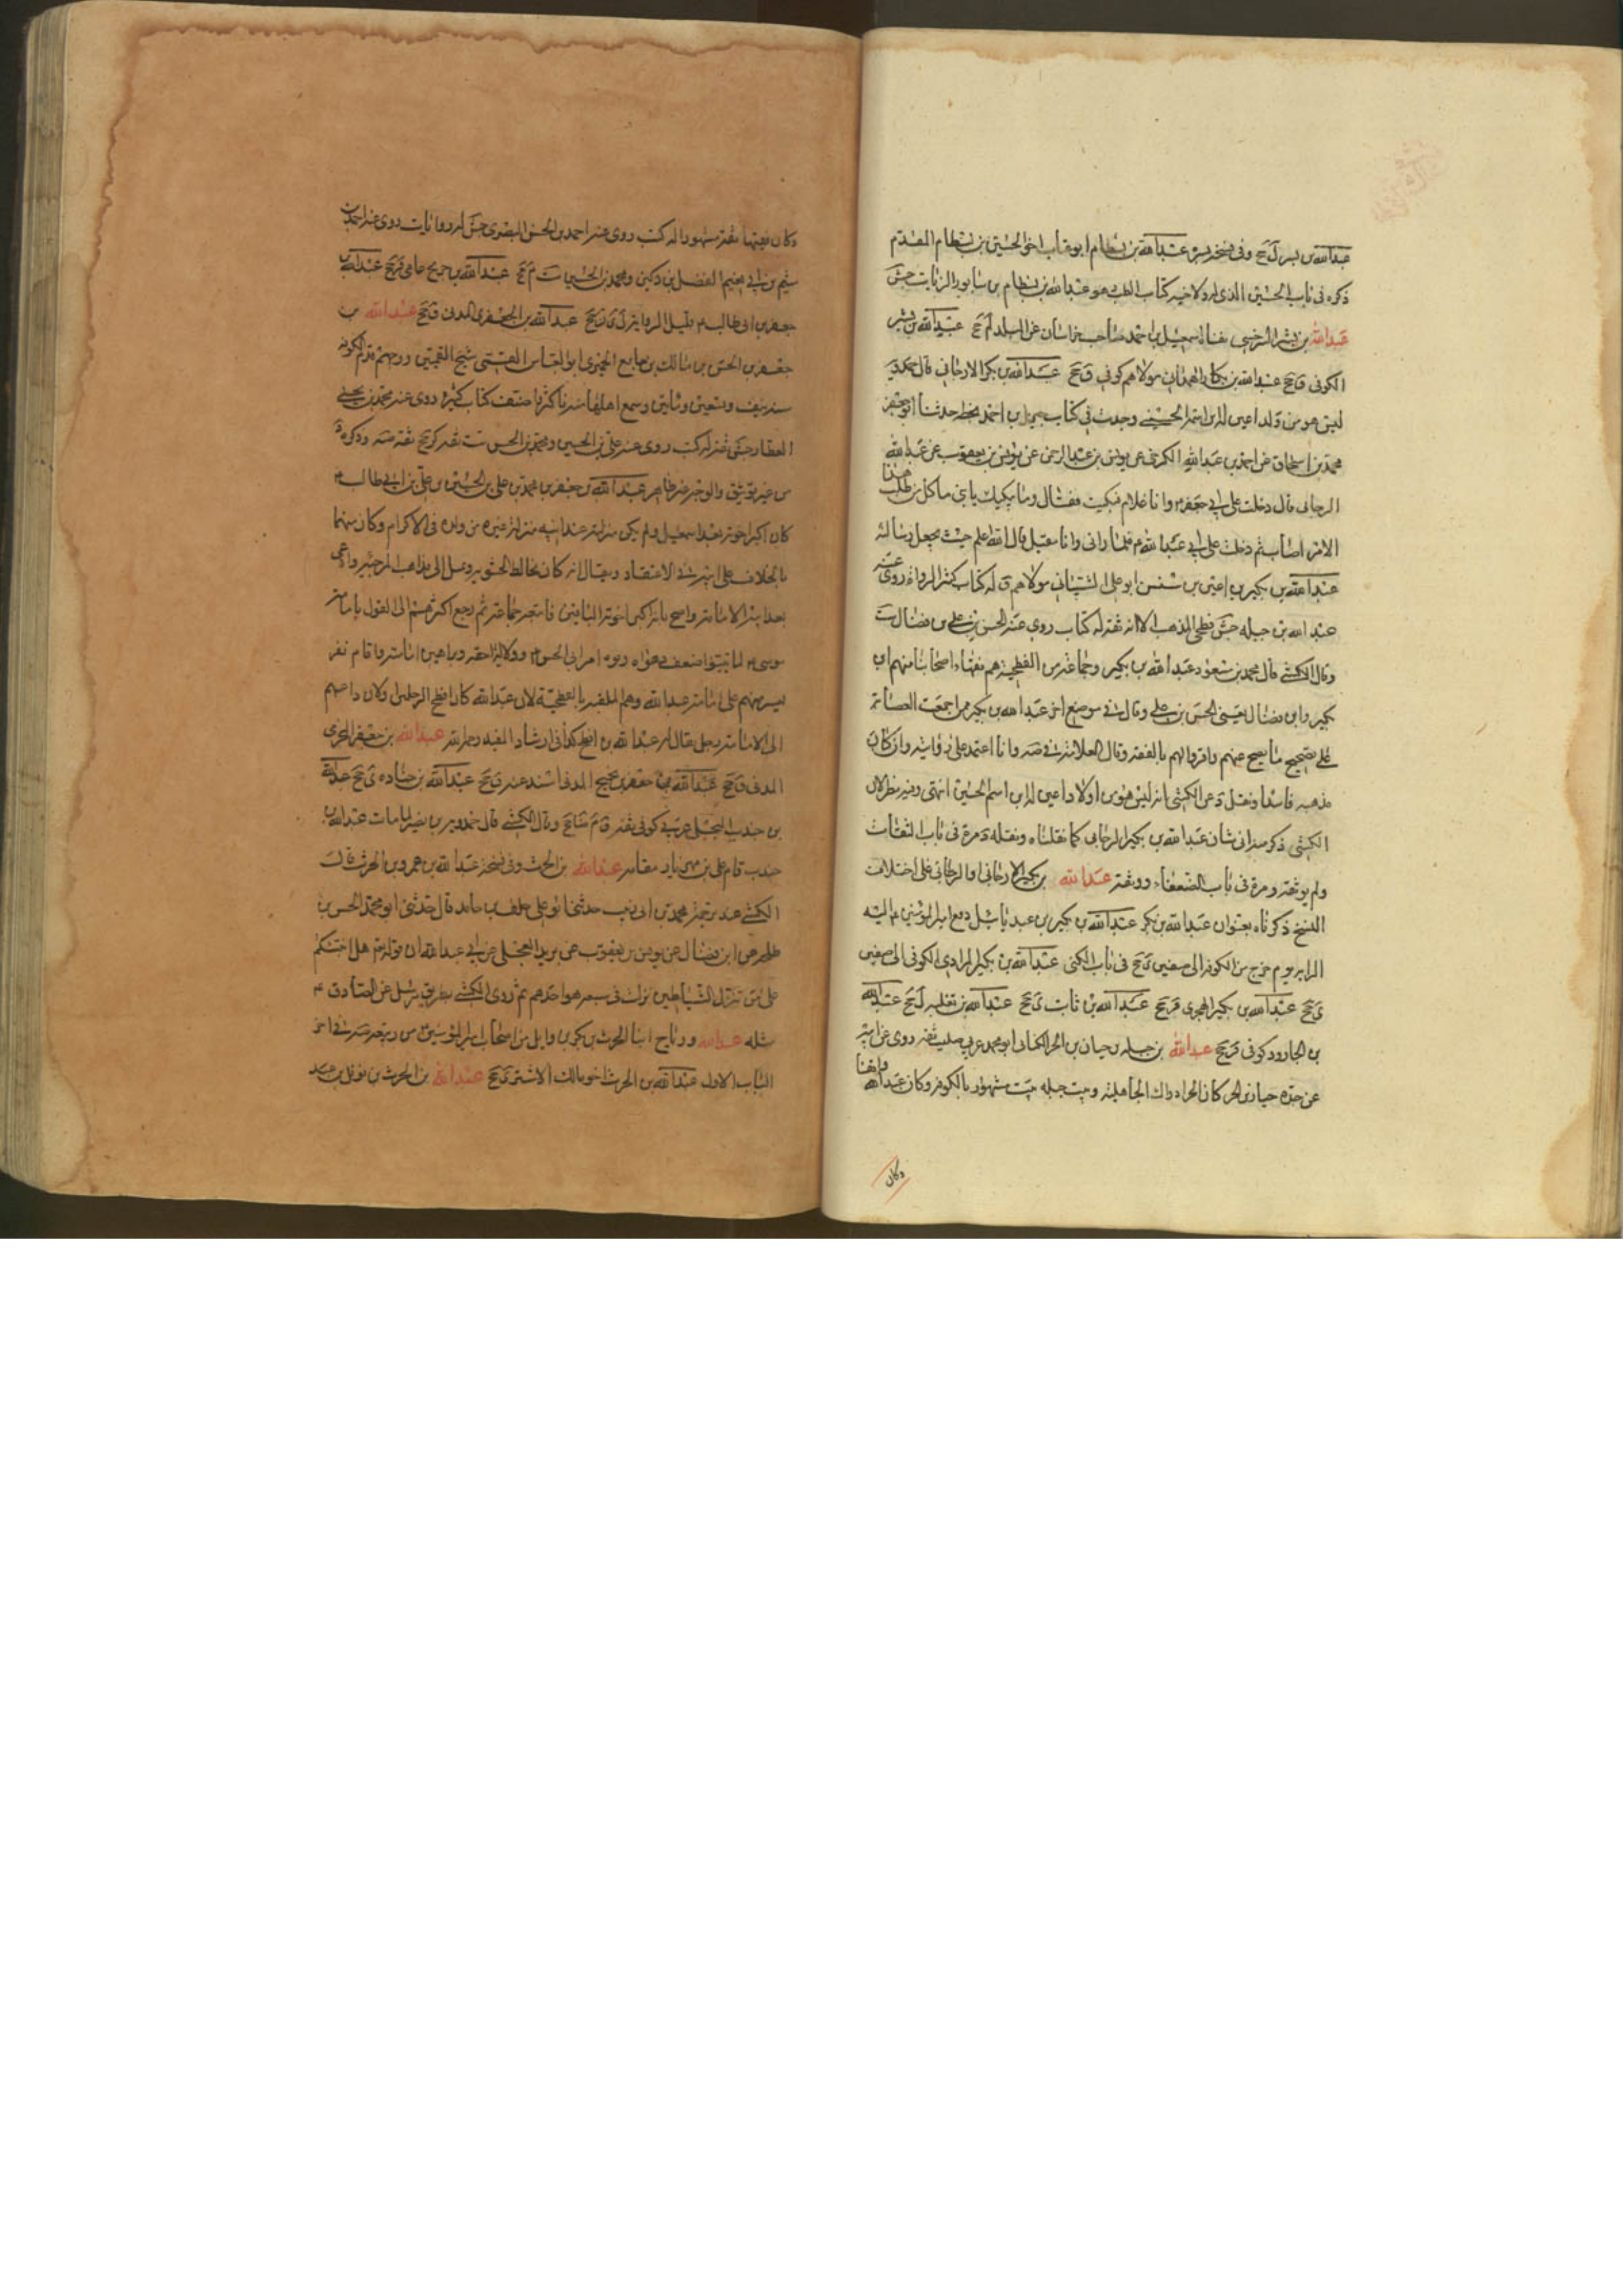 عبدالله بن بسر ل جخ وفى نسخة بسره عبدالله بن بسطام ابوعتاب اخو الحسين بن بسطام المقدم
ذكره فى باب الحسين الذى له ولاخيه كتاب الطب هو عبدالله بن بسطام بن سابور الزيات جش
عبدالله بن بشر السرخسى اسمعيل بن احمد صاحب خراسان عن البلد لم جخ عبدالله بن بشر
الكوفى ق جخ عبدالله بن بكار الهمدانى مولاهم كوفى ق جخ عبدالله بن بكر الارجانى قال حمدويه
ليس هو من ولد اعين له ابن اسمه الحسين وجدت فى كتاب جبريل بن احمد بخطه حدثنا ابو جعفر
محمد بن اسحاق عن احمد بن عبدالله الكرخى عن يونس بن عبدالرحمن عن يونس بن يعقوب عن عبدالله
الرجانى قال دخلت على ابى جعفر م وانا غلام فبكيت فقال وما يبكيك يا بنى ما كل من طلب هذا
الامر اصابه ثم دخلت على ابى عبدالله م فلما رانى وانا مقبل قال الله اعلم حيث يجعل رسالته
عبدالله بن بكير بن اعين بن سنسن ابو على الشيبانى مولاهم ق له كتاب كثير الرواة روى عنه
عبدالله بن جبله جش فطحى المذهب الا انه ثقه له كتاب روى عنه الحسن بن على بن فضال ست
وقال الكشى قال محمد بن مسعود عبدالله بن بكير وجماعة من الفطحية هم فقهاء اصحابنا منهم ابن
بكير وابن فضال يعنى الحسن بن على وقال فى موضع اخر عبدالله بن بكير ممن اجمعت العصابة
على تصحيح ما يصح عنهم واقروا لهم بالفقه وقال العلامة فى صه وانا اعتمد على روايته وان كان
مذهبه فاسدا ونقل د عن الكشى انه ليس هو من اولاد اعين له ابن اسمه الحسين انتهى وفيه نظر لان
الكشى ذكر هذا فى شان عبدالله بن بكير الرجانى كما نقلناه ونقله د مرة فى باب الثقات
ولم يوثقه ومرة فى باب الضعفاء ووثقه عبدالله بن بكير الارجانى او الرجانى على اختلاف
النسخ ذكرناه بعنوان عبدالله بن بكر عبدالله بن بكير بن عبد ياليل دفع امير المؤمنين م اليه
الراية يوم خرج من الكوفة الى صفين ى جخ فى باب الكنى عبدالله بن بكير المرادى الكوفى الى صفين
ى جخ عبدالله بن بكير الهجرى قر جخ عبدالله بن ثابت ى جخ عبدالله بن ثعلبه ل جخ عبدالله
بن الجارود كوفى قر جخ عبدالله بن جبله بن حيان بن الحر الكنانى ابو محمد عربى صليب ثقه روى عن ابيه
عن جده حيان بن الحر كان الحر ادرك الجاهلية وبيت جبله بيت مشهور بالكوفة وكان عبدالله واقفا
وكان
وكان فقيها ثقة مشهورا له كتب روى عنه احمد بن الحسن البصرى جش له روايات روى عنه احمد بن
ميثم بن ابى نعيم الفضل بن دكين ومحمد بن الحسين ست م جخ عبدالله بن جريح عامى قر جخ عبدالله بن
جعفر بن ابى طالب م قليل الرواية ل ى ن جخ عبدالله بن الجعفرى المدنى ق جخ عبدالله بن
جعفر بن الحسن بن مالك بن جامع الحميرى ابو العباس القمى شيخ القميين ووجههم قدم الكوفة
سنة نيف وتسعين ومائتين وسمع اهلها منه فاكثروا وصنف كتبا كثيرة روى عنه محمد بن يحيى
العطار جش ثقة له كتب روى عنه على بن الحسين ومحمد بن الحسن ست ثقة كر جخ ثقه صه وذكره د
من غير توثيق والوجه غير ظاهر عبدالله بن جعفر بن محمد بن على بن الحسين بن على بن ابى طالب م
كان اكبر اخوته بعد اسمعيل ولم يكن منزلته عند ابيه منزلة غيره من ولده فى الاكرام وكان متهما
بالخلاف على ابيه فى الاعتقاد ويقال انه كان يخالط الحشوية ويميل الى مذاهب المرجئة وادعى
بعد ابيه الامامة واحتج بانه اكبر اخوته الباقين فاتبعه جماعة ثم رجع اكثرهم الى القول بامامة
موسى م لما تبينوا ضعف دعواه وقوة امر ابى الحسن م ودلالة احقيته وبراهين امامته واقام نفر
يسير منهم على امامة عبدالله وهم الملقبة بالفطحية لان عبدالله كان افطح الرجلين او لان داعيهم
الى الامامة رجل يقال له عبدالله بن افطح كذا فى ارشاد المفيد رحمه الله عبدالله بن جعفر المخزومى
المدنى ق جخ عبدالله بن جعفر بن نجيح المدنى اسند عنه ق جخ عبدالله بن جناده ى جخ عبدالله
بن جندب البجلى عربى كوفى ثقة ق م ضا جخ وقال الكشى قال حمدويه بن نصير لما مات عبدالله بن
جندب قام على بن مهزيار مقامه عبدالله بن الحرث وفى نسخة عبدالله بن عمرو بن الحرث قالت
الكشى عند ترجمة محمد بن ابى زينب حدثنا ابو على خلف بن حامد قال حدثنى ابو محمد الحسن بن
طلحه عن ابن فضال عن يونس بن يعقوب عن بريد العجلى عن ابى عبدالله ان قوله تم هل انبئكم
على من تنزل الشياطين نزلت فى سبعه هو احدهم ثم روى الكشى بطريق مرسل عن الصادق م
مثله عبدالله ورباح ابنا الحرث بن بكر بن وايل من اصحاب امير المؤمنين م من ربيعه صه فى اخر
الباب الاول عبدالله بن الحرث اخو مالك الاشتر ى جخ عبدالله بن الحرث بن نوفل بن عبد